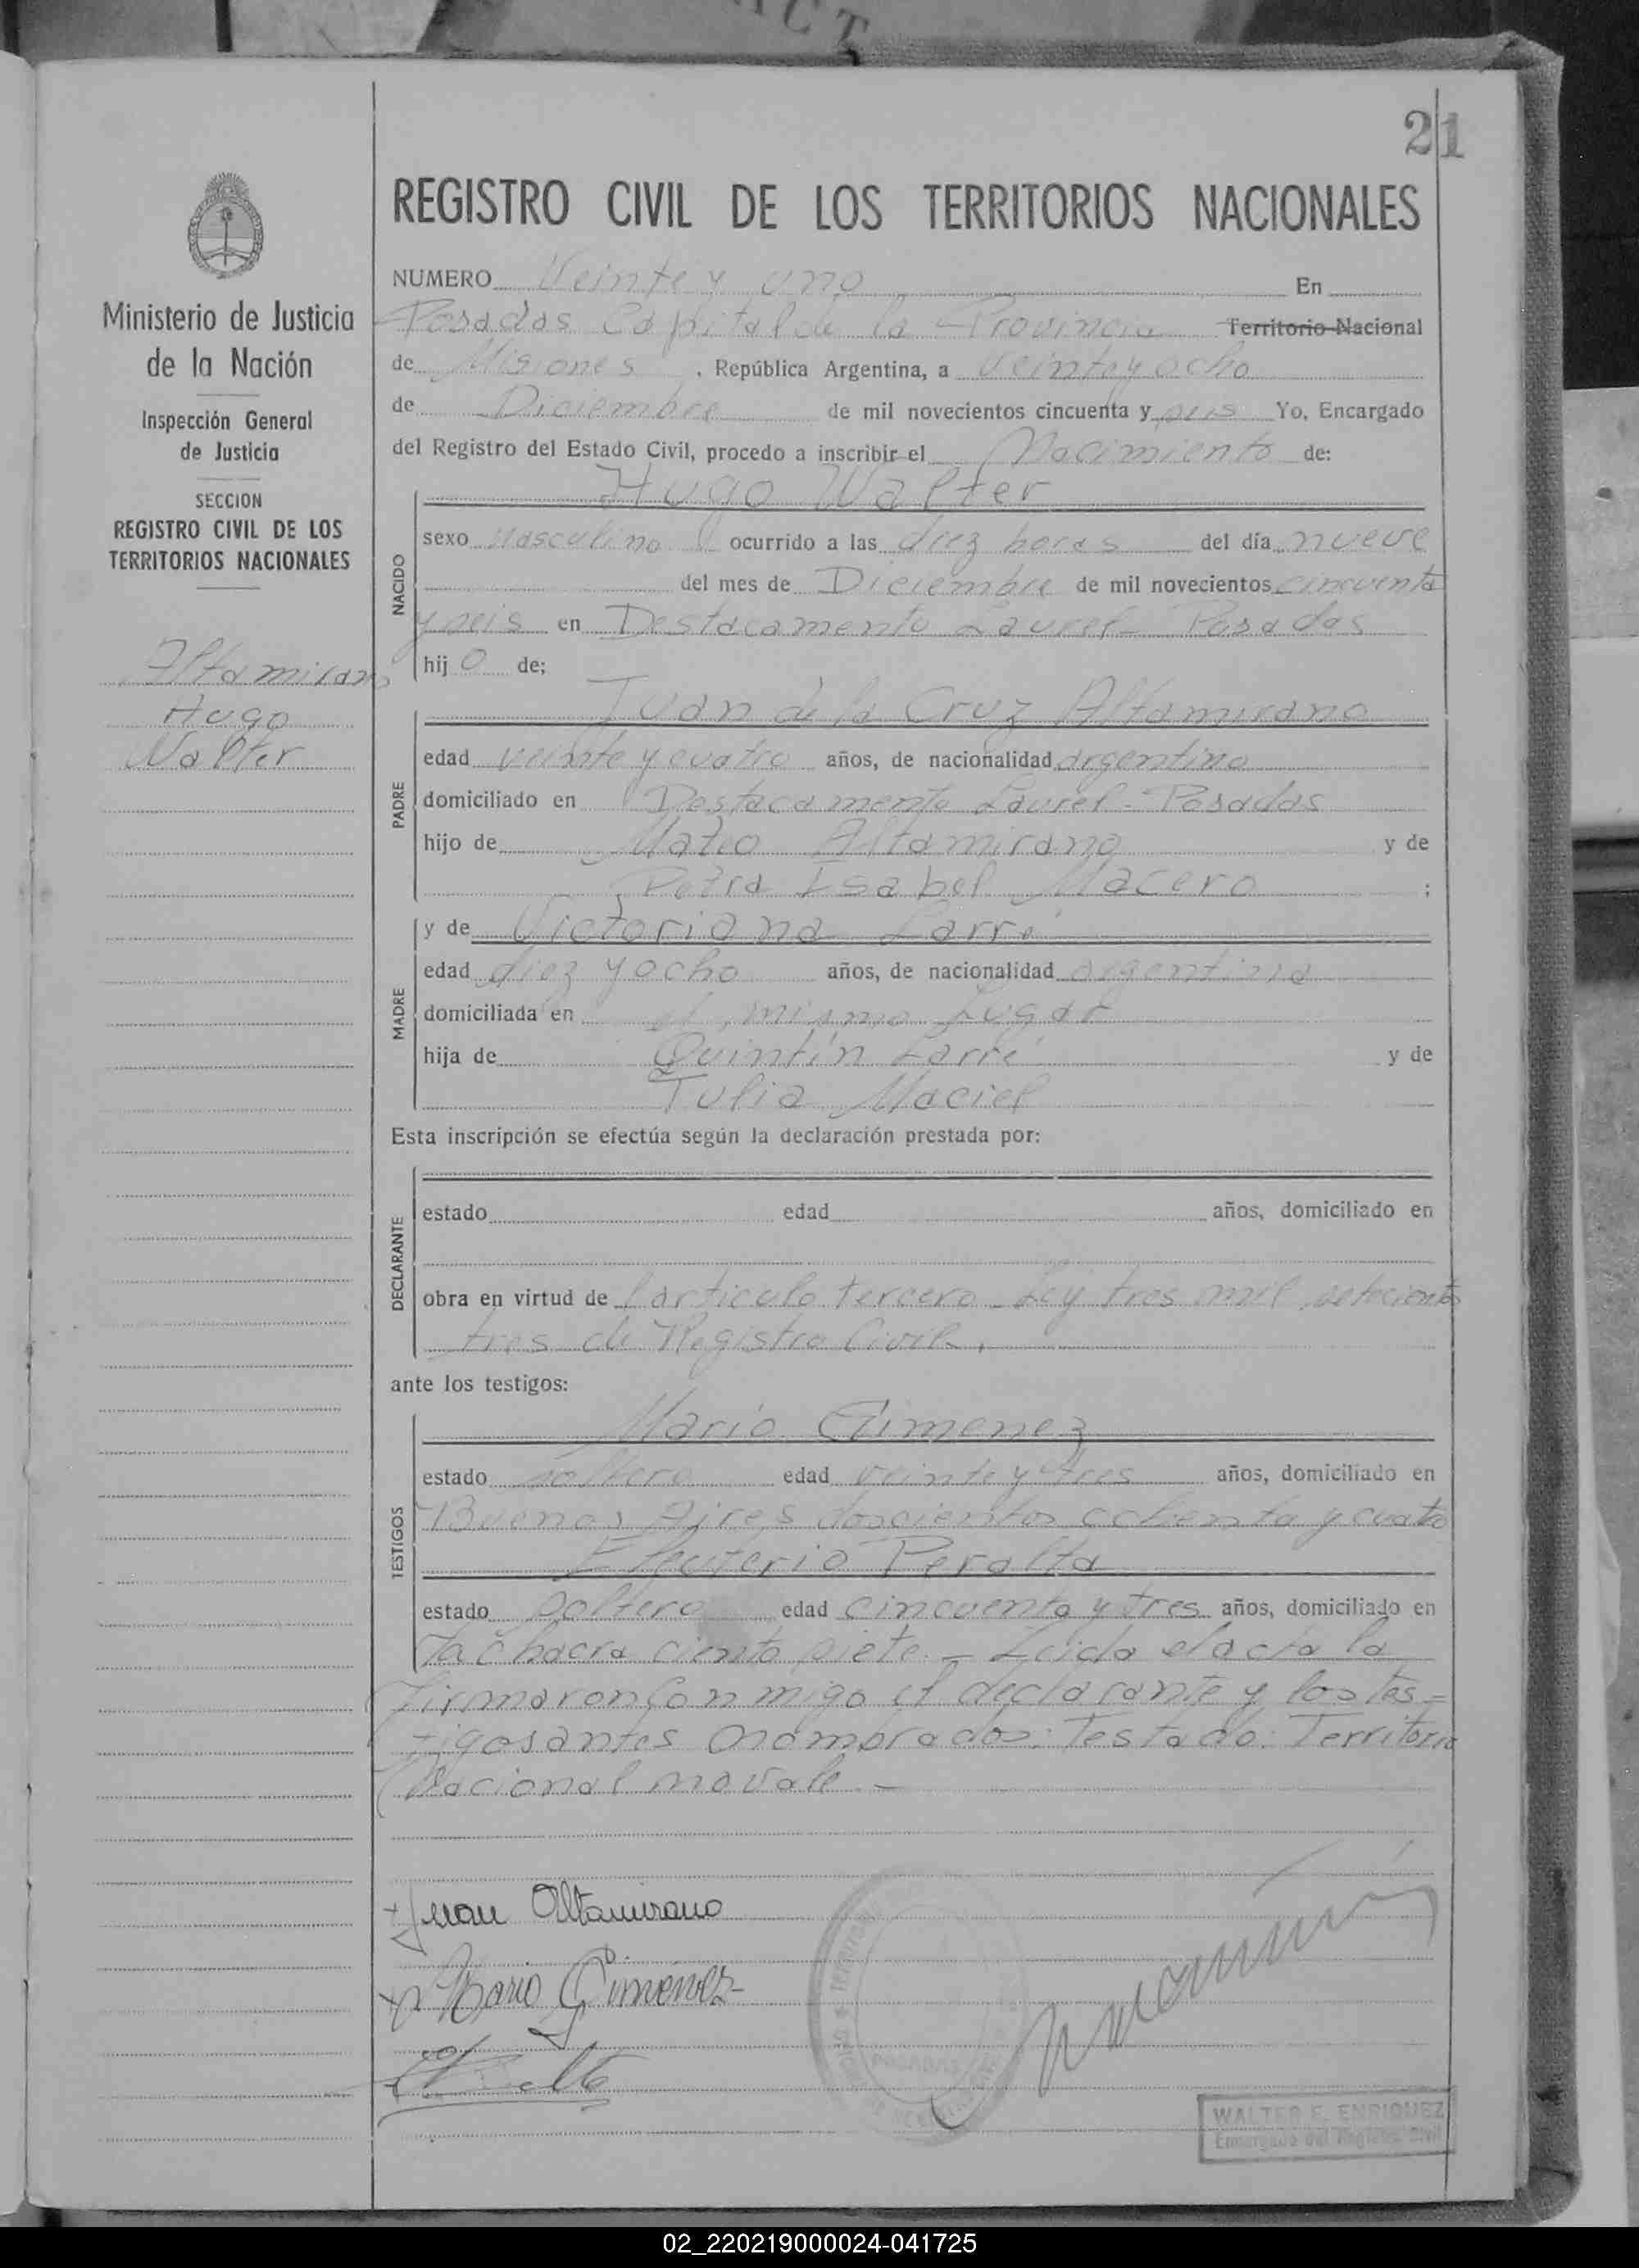 21
REGISTRO CIVIL DE LOS TERRITORIOS NACIONALES
Ministerio de Justicia
de la Nación
Inspección General
de Justicia
SECCION
REGISTRO CIVIL DE LOS
TERRITORIOS NACIONALES
Altamirano
Hugo
Walter
NUMERO Veinte y uno En
Posadas Capital de la Provincia Territorio Nacional
de Misiones, República Argentina, a veinte y ocho
de Diciembre de mil novecientos cincuenta y seis Yo, Encargado
del Registro del Estado Civil, procedo a inscribir el Nacimiento de:
Hugo Walter
NACIDO
sexo Masculino ocurrido a las diez horas del día nueve
del mes de Diciembre de mil novecientos cincuenta
y seis en Destacamento Laurel - Posadas
hijo de;
Juan de la Cruz Altamirano
PADRE
edad veinte y cuatro años, de nacionalidad argentino
domiciliado en Destacamento Laurel - Posadas
hijo de Altamirano y de
Petra Isabel Macero ;
MADRE
y de Victoriana Larré
edad diez y ocho años, de nacionalidad argentina
domiciliada en el mismo Lugar
hija de Quintín Larré y de
Julia Maciel
Esta inscripción se efectúa según la declaración prestada por:
DECLARANTE
estado edad años, domiciliado en
obra en virtud de l articulo tercero Ley tres mil setecientos
tres de Registro Civil.
ante los testigos:
TESTIGOS
Mario Gimenez
estado soltero edad veinte y tres años, domiciliado en
Buenos Aires doscientos ochenta y cuatro
Eleuterio Peralta
estado Soltero edad cincuenta y tres años, domiciliado en
la chacra ciento siete. - Leida el acta la
firmaron conmigo el declarante y los tes-
tigos antes nombrados: Testado: Territorio
Nacional no vale. -
Juan Altamirano
Mario Gimenez
POSADAS
WALTER E. ENRIQUEZ
Encargado del Registro Civil
02_220219000024-041725